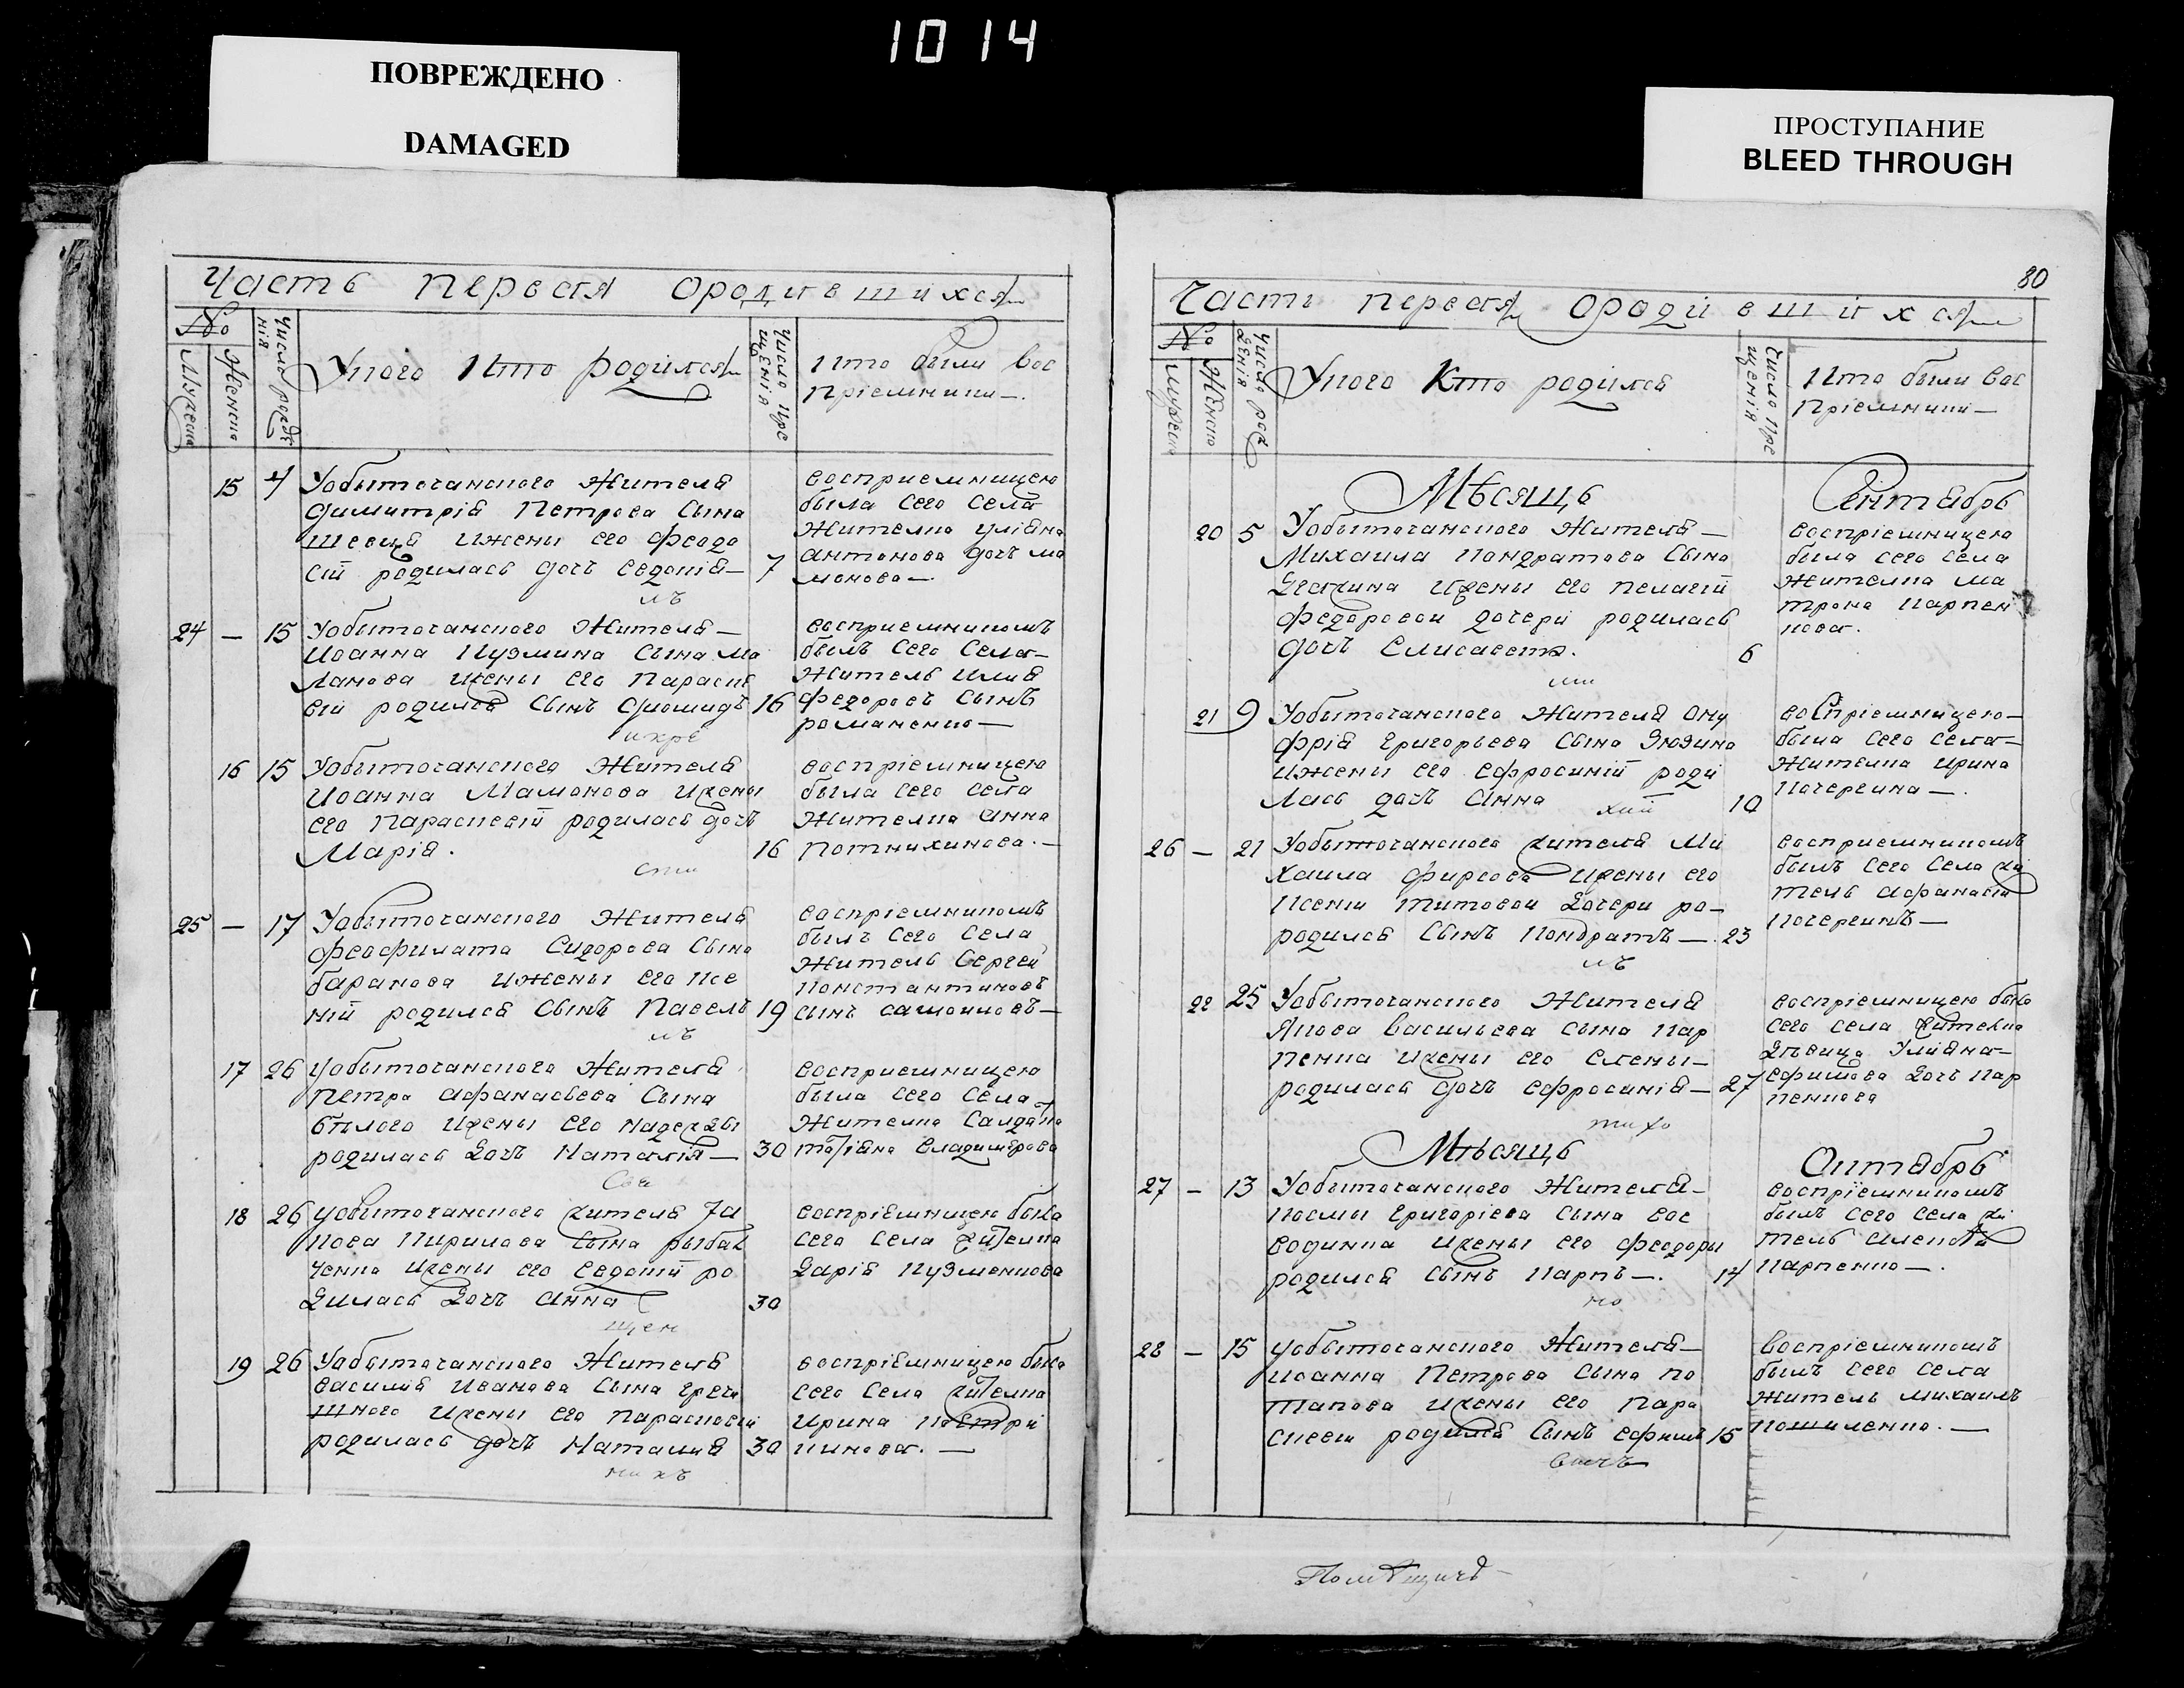 1014
ПОВРЕЖДЕНО
DAMAGED
ПРОСТУПАНИЕ
BLEED THROUGH
Часть первая ородившихся
№
Мужеска
Женска
Число рожде
нія
Укого Кто родился
Число кре
щенія
Кто были вос
пріемники —
15 4 Уобыточанского Жителя
Димитрія Петрова Сына
Шевца Ижены его Феодо
сіи родилась дочь Евдокія — 7
восприемницею
была сего села
Жителка Уліяна
Антонова дочь Ма
монова —
24 — 15 Уобыточанского Жителя —
Иоанна Кузмина Сына Ма
Ижены его Параске
віи родился Сынъ Диомидъ 16
восприемникомъ
былъ сего села —
Житель Илия
Федоровъ Сынъ
романенко —
16 15 Уобыточанского Жителя
Иоанна Мамонова Ижены
его Параскевіи родилась дочь
Марія. 16
воспріемницею
была сего села
Жителка Анна
Потнихинова. —
25 — 17 Уобыточанского Жителя
Феофилата Сидорова Сына
баранова Ижены его Ксе
ніи родился Сынъ Павелъ 19
воспріемникомъ
былъ сего села
Житель Сергей
Константиновъ
сынъ
17 26 Уобыточанского Жителя
Петра Афанасьева Сына
белого Ижены его Надежды
родилась Дочь Наталія — 30
восприемницею
была сего села
Жителка Салда
Татіяна Владимірова
18 26 Уобыточанского жителя Яа
кова Кирилова Сына рыбал
ченка Ижены его Евдокіи ро
дилась Дочь Анна 30
воспріемницею была
сего села жителка
Дарія Кузменкова
19 26 Уобыточанского Жителя
Василія Иванова Сына Гречи
шного Ижены его Параскевіи
родилась дочь Наталия 30
воспріемницею была
сего села жителка
Ирина Костри
кинова. —
80
Часть первая ородившихся
№
Мужеск
Женско
Число рож
денія
Укого Кто родился
Число кре
щенія
Кто были вос
пріемники —
Мѣсяцъ Сентябрь
20 5 Уобыточанского Жителя —
Михаила Кондратова Сына
Ижены его Пелагіи
Федоровой дочери родилась
дочь Елисавета. 6
воспріемницею
была сего села
Жителка Ма
трона Карпен
кова.
21 9 Уобыточанского Жителя Ону
фрія Григорьева Сына Зюзина
Ижены его Ефросиніи роди
лась дочь Анна 10
воспріемницею —
была сего села —
Жителка Ирина
Кочергина —.
26 — 21 Уобыточанского жителя Ми
хаила Фирсова Ижены его
Ксении Титовой Дочери ро —
родился Сынъ Кондратъ —. 23
восприемникомъ
былъ сего села жи
тель Афанасій
Кочергинъ —
22 25 Уобыточанского Жителя
Якова Васильева сына Кар
пенка Ижены его Елены —
родилась дочь Ефросинія — 27
воспріемницею была
сего села жителка
Дѣвица Уліяна —
Ефимова Дочь Кар
пенкова
Мѣсяцъ Октябрь
27 — 13 Уобыточанского Жителя —
Космы Григоріева Сына вос
водинка Ижены его Феодоры
родился Сынъ Карпъ —. 14
воспріемникомъ
былъ сего села жи
тель Алексѣй
Карпенко —.
28 — 15 Уобыточанского Жителя —
Иоанна Петрова Сына По
тапова Ижены его Пара
скевіи родился Сынъ Ефимъ 15
воспріемникомъ
былъ сего села
Житель Михаилъ
Кошиленко. —